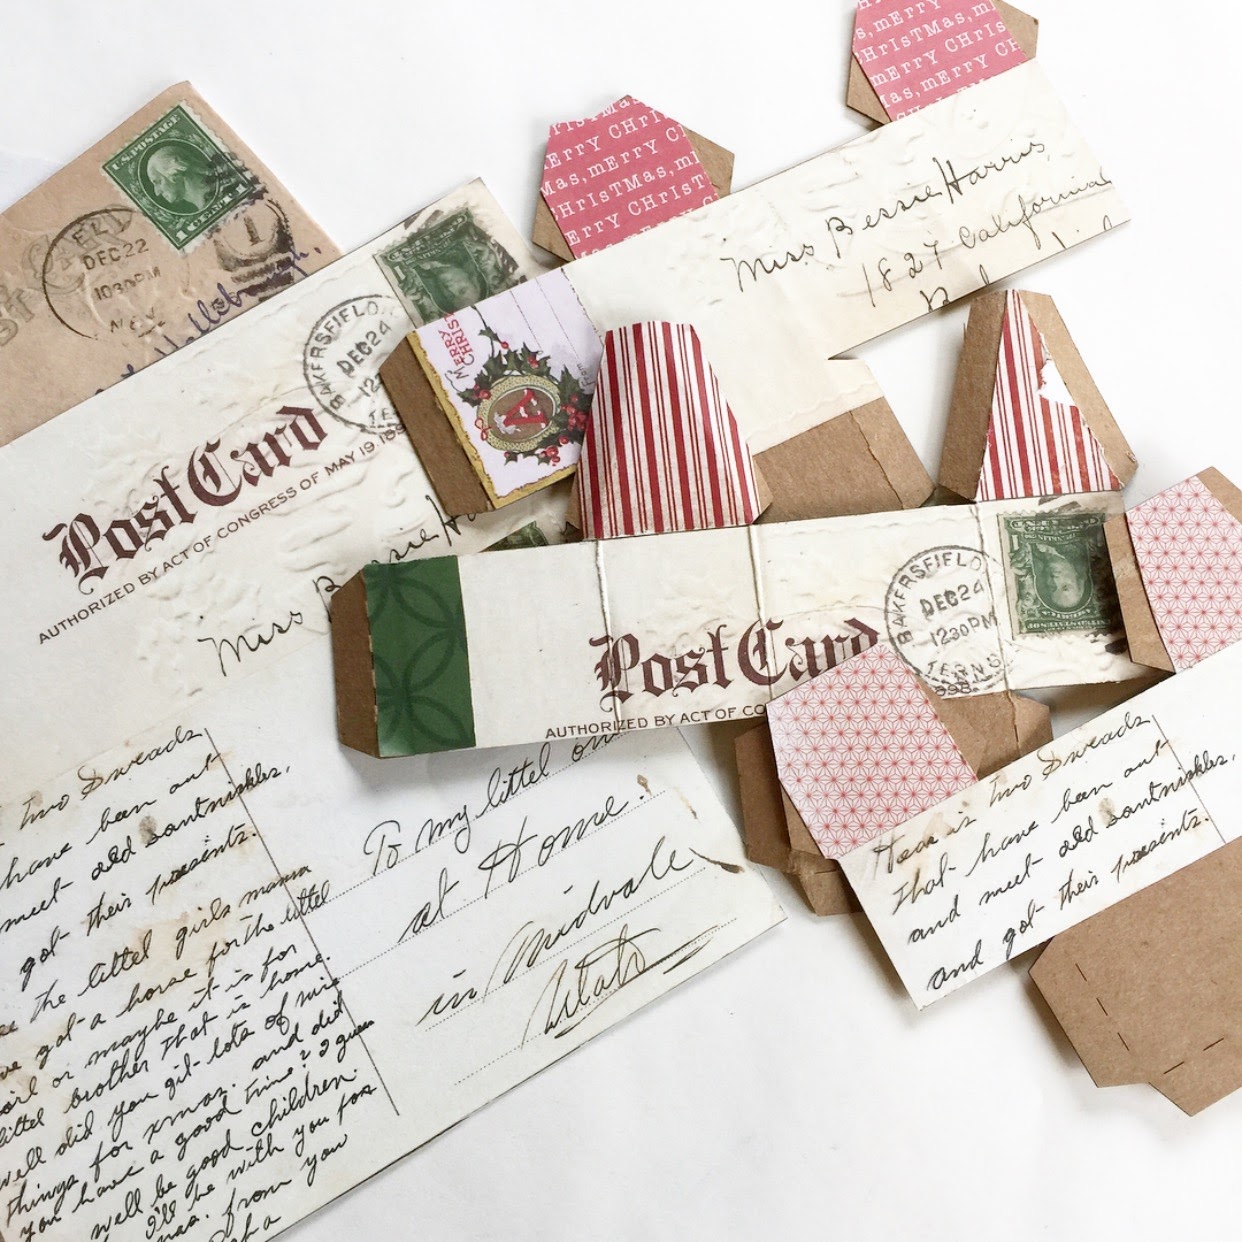 U.S. POSTAGE
1 CENT 1
ELY
DEC 22
10 30 PM
NEV.
1
BAKERSFIELD
DEC 24
12
TE
Post Card
AUTHORIZED BY ACT OF CONGRESS OF MAY 19 189
Miss Bessie Ha
Merry Christmas, merry
Christmas, merry Christ
mas, merry Christmas, m
Christmas, merry
Merry Chr
istmas, merry
Miss Bessie Harris,
1827 California
MERRY
CHRIST
From
BAKERSFIELD
DEC 24
12 30 PM
TERNS
898.
Post Card
AUTHORIZED BY ACT OF CO
two Sweads
have been out
meet old santnickles,
got their presents.
see the littel girls mama
ve got a horse for the littel
girl or maybe it is for
littel brother that is home.
well did you git lots of nice
things for xmas. and did
you have a good time? I guess
well be good children.
I'll be with you for
mas. from you
To My littel on
at Home.
in Midvale
Utah
Hear is two Sweads
that have been out
and meet old santnickles,
and got their presents.